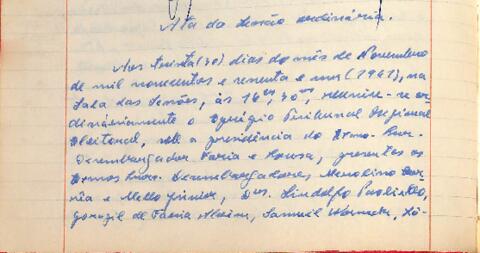 Ata da sessão ordinária.
Aos trinta (30) dias do mês de Novembro
de mil novecentos e sessenta e um (1961), na
Sala das Sessões, às 16 hs, 30 ms, reuniu-se or-
dinàriamente o Egrégio Tribunal Regional
Eleitoral, sob a presidência do Exmo. Snr.
Desembargador Faria e Sousa, presentes os
Exmos Snrs. Desembargadores Merolino Cor-
rêa e Mello Júnior, Drs. Lindolfo Paolielo,
Gonzil de Faria Alvim, Samuel Werneck, Lô-